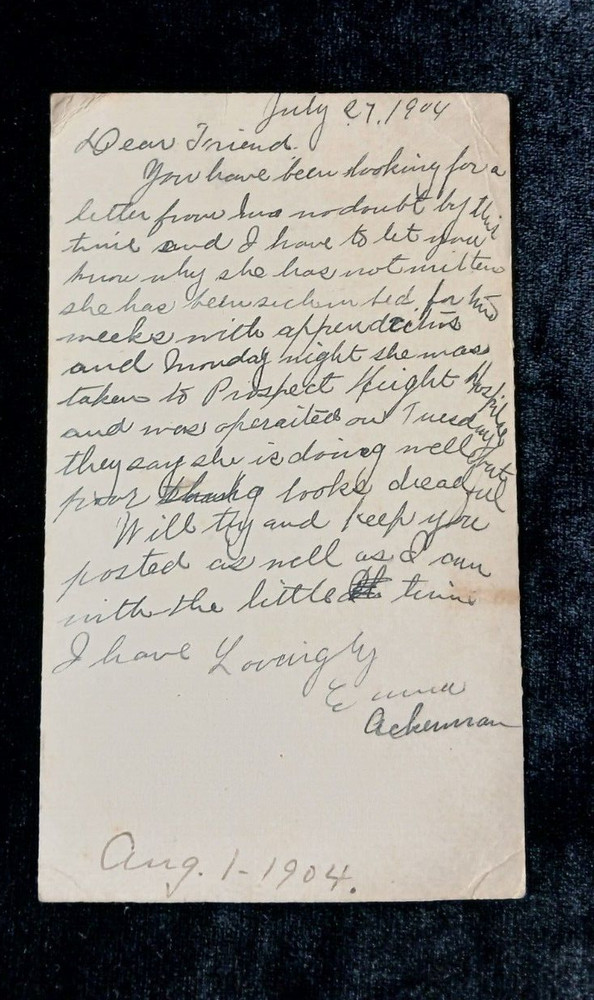 July 27, 1904
Dear Friend.
You have been looking for a
letter from no doubt by this
time and I have to let you
know why she has not written
she has been sick in bed for two
weeks with appendicitis
and Monday night she was
taken to Prospect Height Hospital
and was operaited on Tuesday
they say she is doing well but
poor looks dreadful
Will try and keep you
posted as well as I can
with the little time
I have Lovingly
Emma
Ackerman
Aug. 1 - 1904.